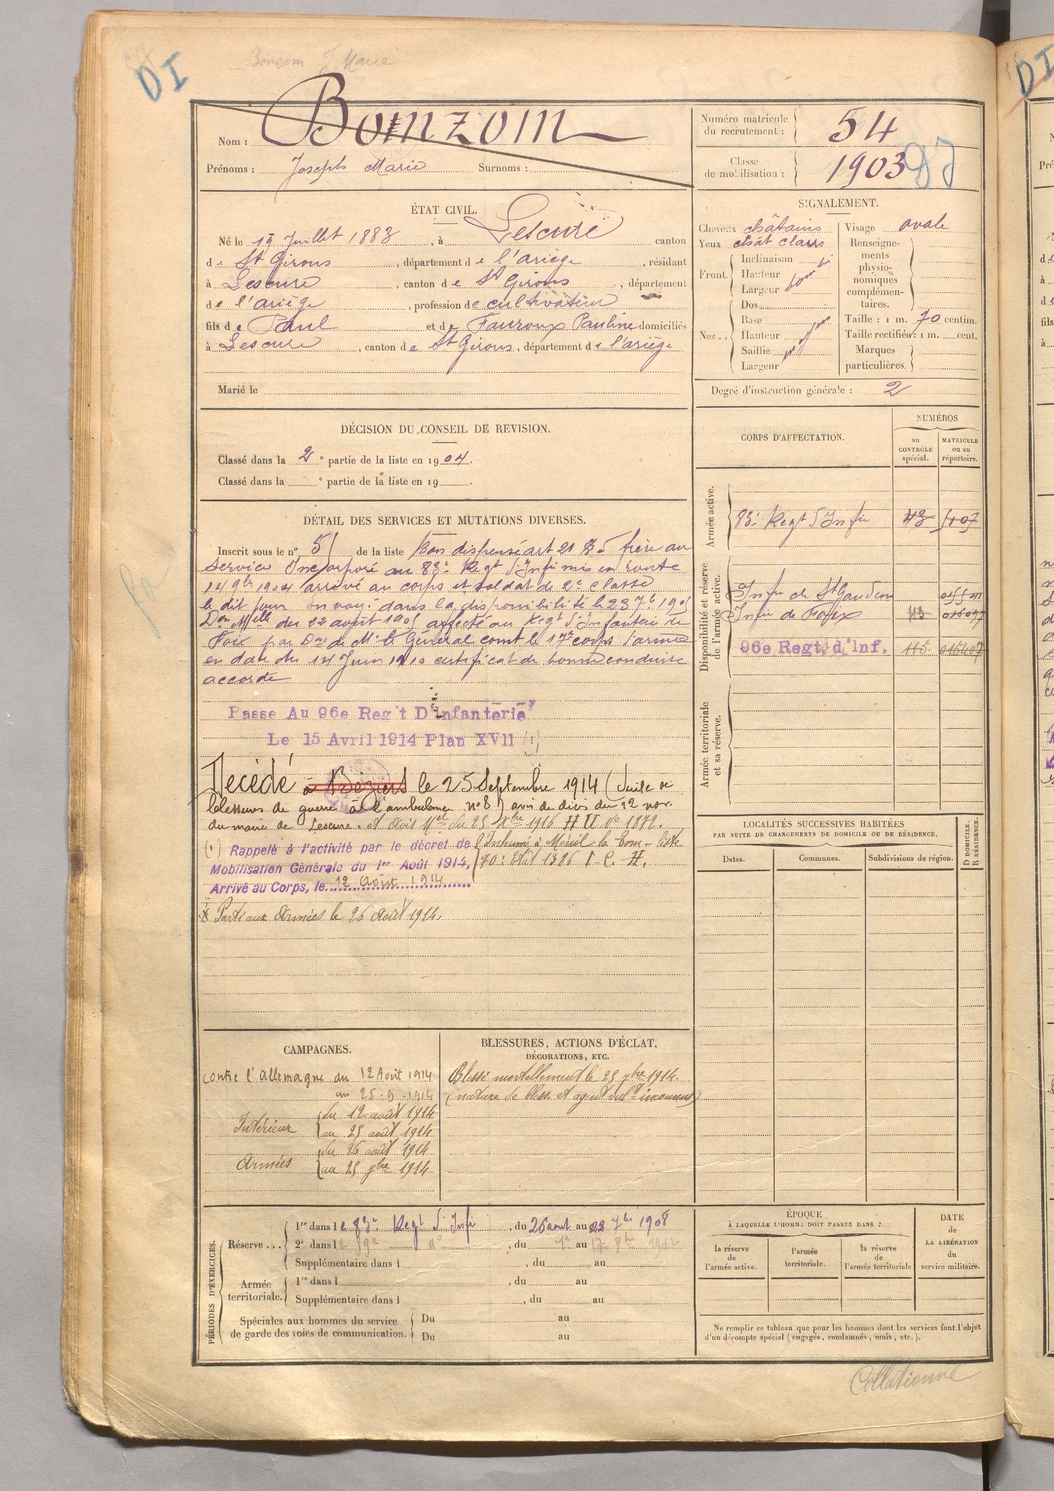 DI
Bonzom J. Marie
Nom : Bonzom
Prénoms : Joseph Marie Surnoms :
Numéro matricule du recrutement : 54
Classe de mobilisation : 1903
ÉTAT CIVIL.
Né le 19 Juillet 1883, à Lescure canton
de St Girons, département de l'ariège, résidant
à Lescure, canton de St Girons, département
de l'ariège, profession de cultivateur
fils de Paul et de Fauroux Pauline domiciliés
à Lescure, canton de St Girons, département de l'ariège
Marié le
SIGNALEMENT.
Cheveux châtains
Yeux chât clairs
Front. Inclinaison
Hauteur
Largeur
Nez... Dos
Base
Hauteur
Saillie
Largeur
Visage ovale
Renseignements physionomiques complémentaires.
Taille : 1 m. 70 centim.
Taille rectifiée : 1 m. cent.
Marques particulières.
Degré d'instruction générale : 2
DÉCISION DU CONSEIL DE REVISION.
Classé dans la 2e partie de la liste en 1904.
Classé dans la e partie de la liste en 19
CORPS D'AFFECTATION.
NUMÉROS
au CONTRÔLE spécial.
MATRICULE ou au répertoire.
Armée active.
83e Regt d'Infie
Disponibilité et réserve de l'armée active.
Infie de St Gaudens
Infie de Foix
96e Regt. d'Inf.
Armée territoriale et sa réserve.
DÉTAIL DES SERVICES ET MUTATIONS DIVERSES.
Inscrit sous le n° 51 de la liste Bon dispensé art 21 § 5 frère au
service Incorporé au 83e Regt d'Infie mis en route
14 9bre 1904 arrivé au corps et soldat de 2e classe
le dit jour envoyé dans la disponibilité le 23 7bre 1905
du 22 août 1905 affecté au Regt d'Infanterie de
Foix par Don de Mr le Général comt le 17e corps d'armée
en date du 14 Juin 1910 certificat de bonne conduite
accordé
Passe Au 96e Reg't D'Infanterie
Le 15 Avril 1914 Plan XVII (1)
Décédé à Béziers le 25 Septembre 1914 (Suite de
blessures de guerre à l'ambulance n° 8) avis de décès du 12 nov.
du maire de Lescure.
(1) Rappelé à l'activité par le décret de
Mobilisation Générale du 1er Août 1914,
Arrivé au Corps, le 12 Août 1914
Inhumé à Ménil la Tour - liste
Parti aux Armées le 26 Août 1914.
LOCALITÉS SUCCESSIVES HABITÉES
PAR SUITE DE CHANGEMENTS DE DOMICILE OU DE RÉSIDENCE.
Dates.
Communes.
Subdivisions de région.
D DOMICILE. R RÉSIDENCE.
CAMPAGNES.
contre l'Allemagne du 12 Août 1914
au 25-9-1914
Intérieur du 12 août 1914
au 25 août 1914
Armées du 26 août 1914
au 25 7bre 1914
BLESSURES, ACTIONS D'ÉCLAT,
DÉCORATIONS, ETC.
Blessé mortellement le 25 7bre 1914.
(nature de bless. et agent vul. inconnus)
PÉRIODES D'EXERCICES.
Réserve... 1re dans le 83e Regt d'Infie, du 26 août au 22 7bre 1908
2e dans le 59e do, du 1er au 17
Supplémentaire dans l, du au
Armée territoriale. 1re dans l, du au
Supplémentaire dans l, du au
Spéciales aux hommes du service de garde des voies de communication. Du au
Du au
ÉPOQUE
À LAQUELLE L'HOMME DOIT PASSER DANS :
la réserve de l'armée active.
l'armée territoriale.
la réserve de l'armée territoriale
DATE
de
LA LIBÉRATION
du
service militaire.
Ne remplir ce tableau que pour les hommes dont les services font l'objet
d'un décompte spécial (engagés, condamnés, omis, etc.).
Collationné